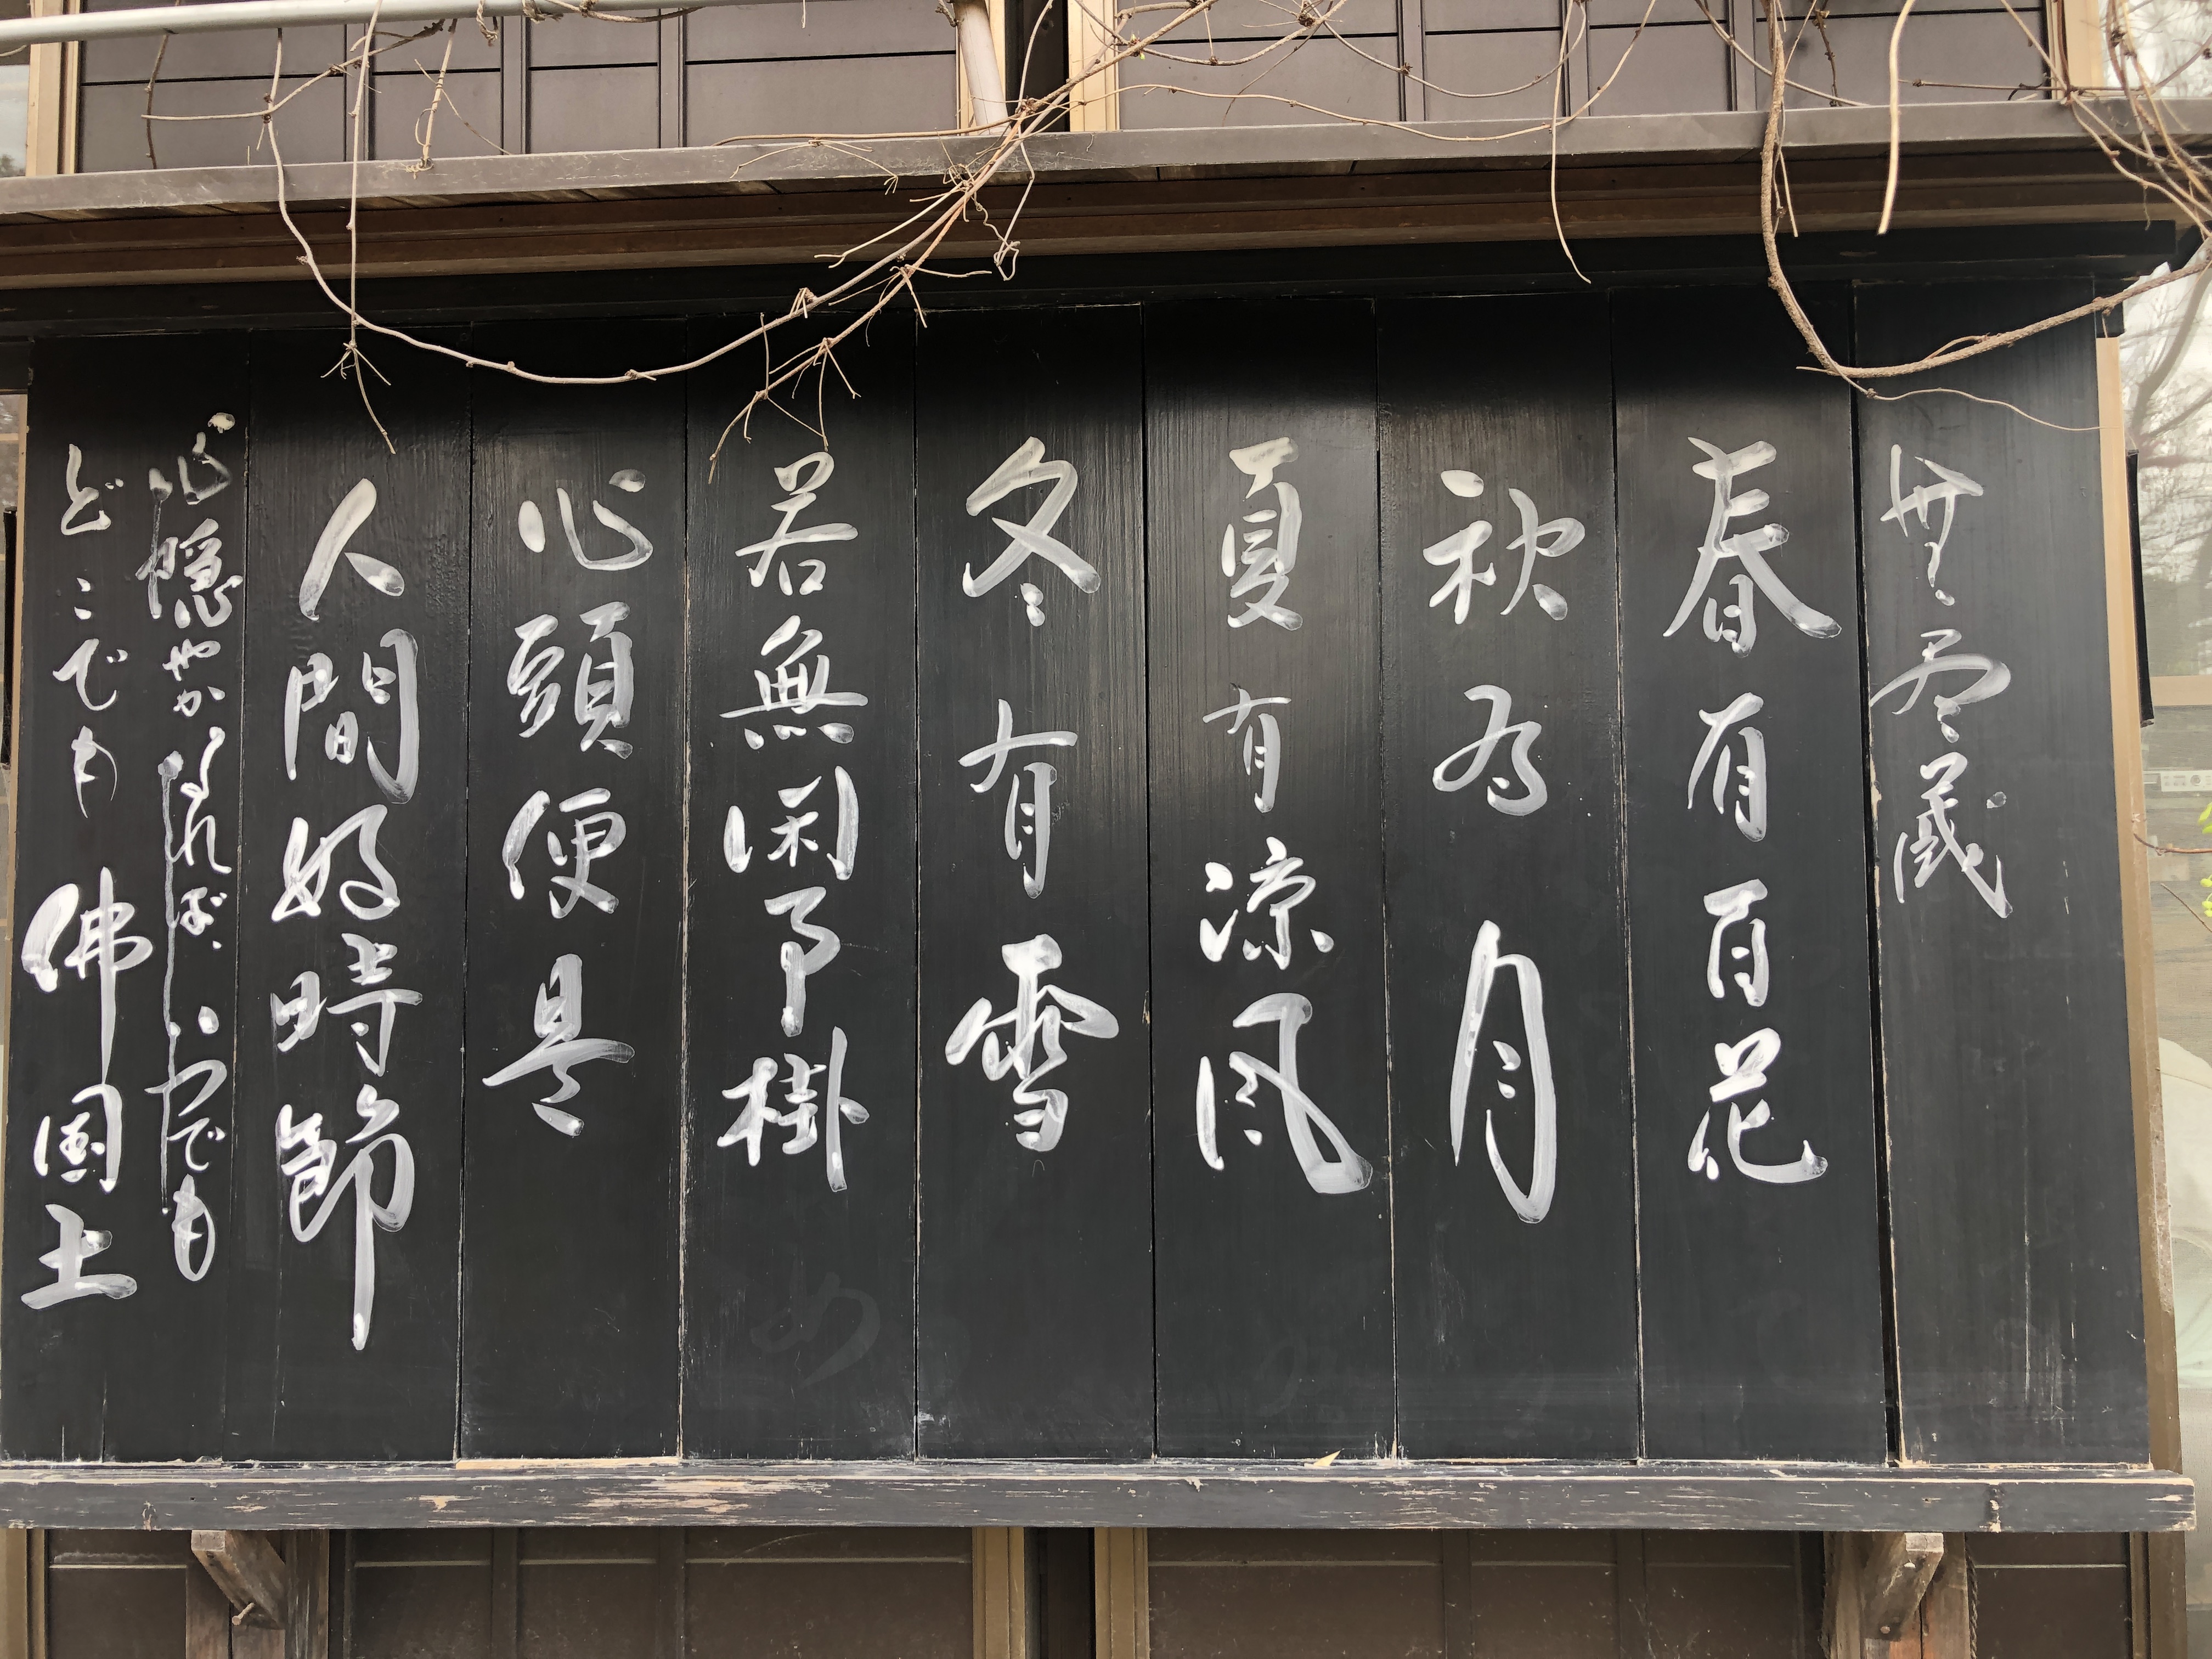 無尽蔵
春有百花
秋有月
夏有涼風
冬有雪
若無閑事掛
心頭便是
人間好時節
心穏やかなれば、いつでも
どこでも佛国土